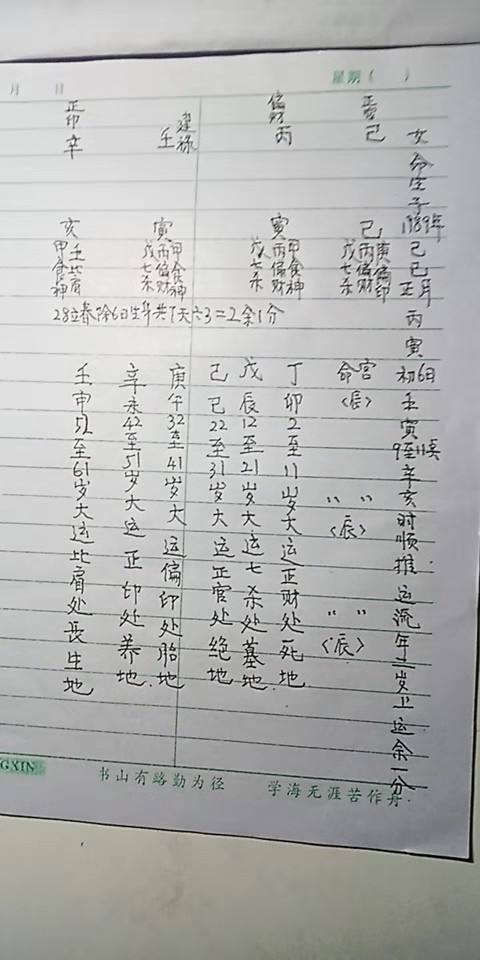 月 日 星期( )
女命生于1989年己巳正月丙寅初6日壬寅9至11点辛亥时顺推运流年二岁上运余一分
己
巳
庚偏印
丙偏财
戊七杀
偏财
丙
寅
甲食神
丙偏财
戊七杀
建禄
壬
寅
甲食神
丙偏财
戊七杀
正印
辛
亥
壬比肩
甲食神
28立春除6日生年共7天六3=2余1分
命宫
〈辰〉
〃 〃
〈辰〉
〃 〃
〈辰〉
丁卯2至11岁大运正财处死地
戊辰12至21岁大运七杀处墓地.
己巳22至31岁大运正官处绝地
庚午32至41岁大运偏印处胎地
辛未42至51岁大运正印处养地.
壬申52至61岁大运比肩处长生地
GXIN 书山有路勤为径 学海无涯苦作舟